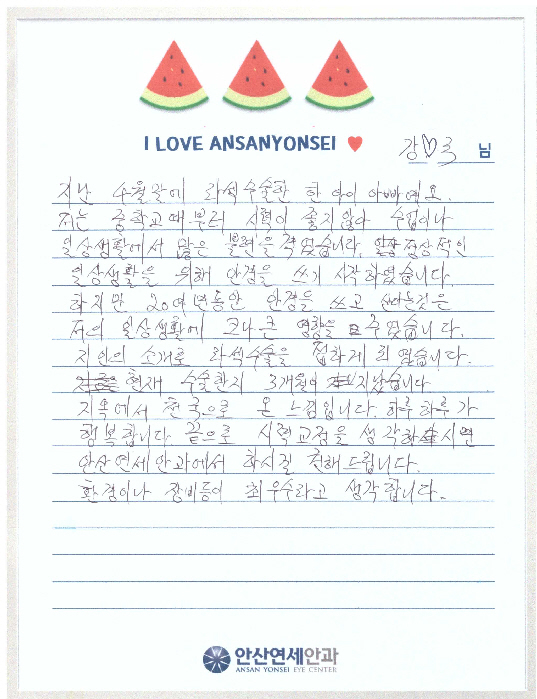 I LOVE ANSANYONSEI
강♡구 님
지난 수월달에 라식수술한 한 아이 아빠에요.
저는 중학교때부터 시력이 좋지않아 수업이나
일상생활에서 많은 불편을 격었습니다. 정상적인
일상생활을 위해 안경을 쓰기 시작하였습니다.
하지만 20여년동안 안경을 쓰고 산다는것은
저의 일상생활에 크나큰 영향을 주었습니다.
지인의 소개로 라식수술을 접하게 되었습니다.
현재 수술한지 3개월이 지났습니다
지옥에서 천국으로 온 느낌입니다. 하루하루가
행복합니다. 끝으로 시력교정을 생각하시면
안산연세안과에서 하시길 권해드립니다.
환경이나 장비등이 최우수라고 생각합니다.
안산연세안과
ANSAN YONSEI EYE CENTER